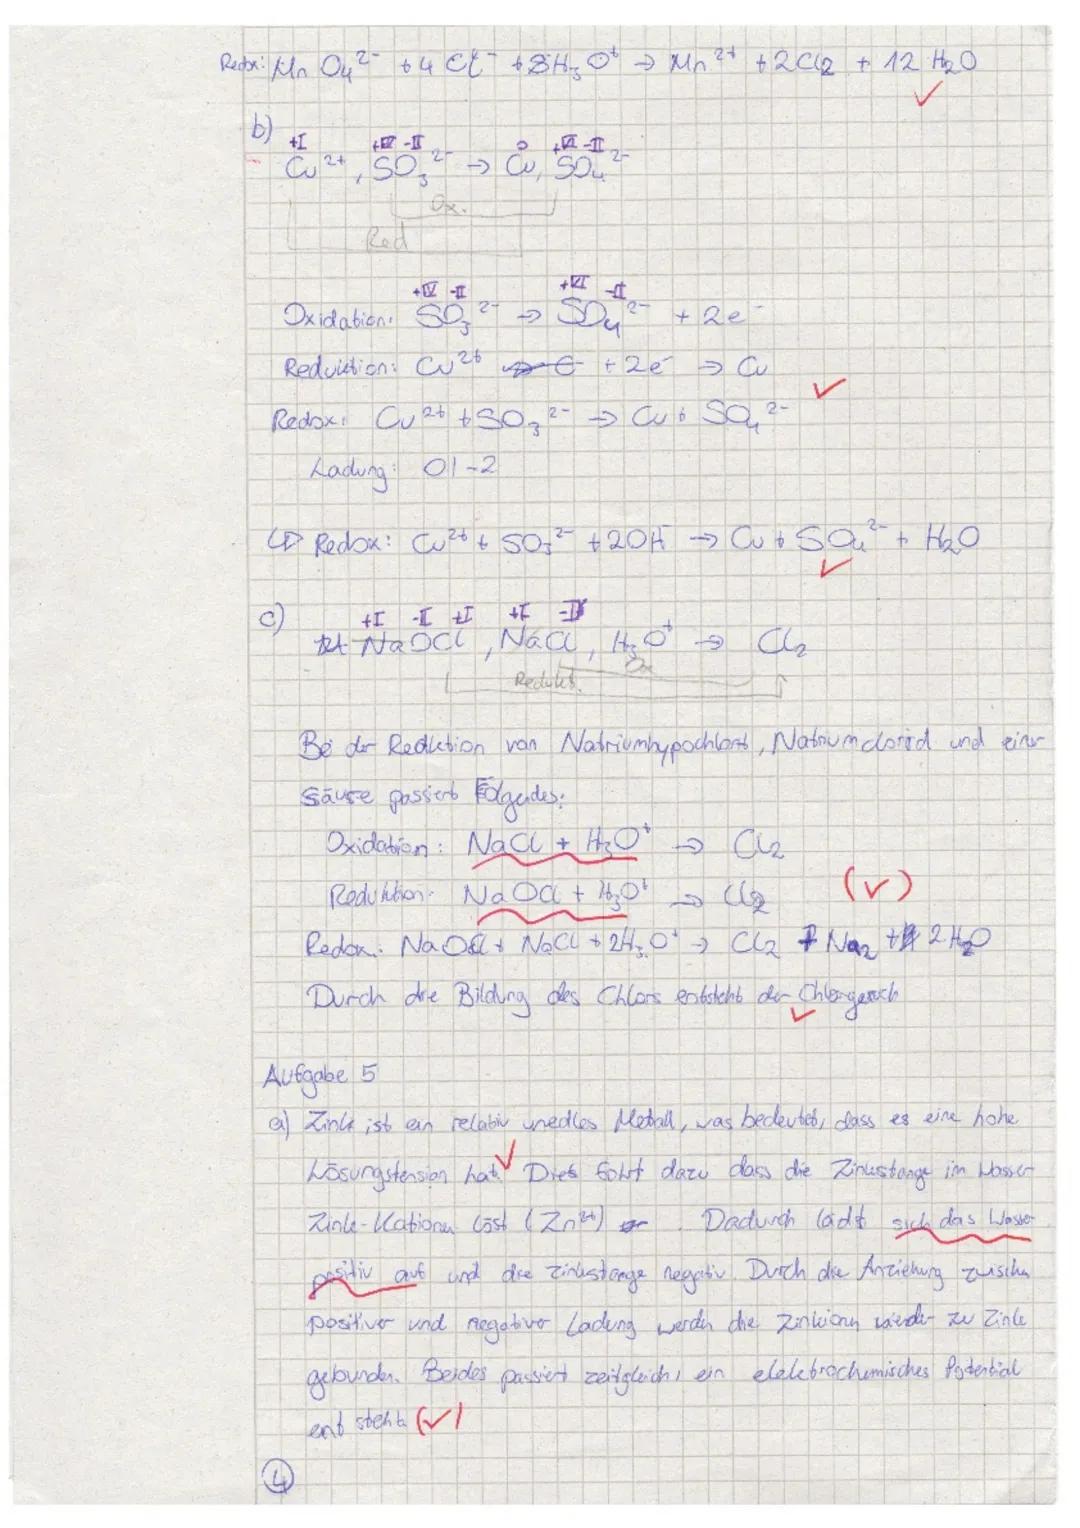 Redox: MnO₄²⁻ + 4 Cl⁻ + 8H₃O⁺ → Mn²⁺ + 2Cl₂ + 12 H₂O
b)
+I +IV -II 0 +VI -II
Cu²⁺, SO₃²⁻ → Cu, SO₄²⁻
Ox.
Red
+IV -II +VI -II
Oxidation: SO₃²⁻ → SO₄²⁻ + 2e⁻
Reduktion: Cu²⁺ + 2e⁻ → Cu
Redox: Cu²⁺ + SO₃²⁻ → Cu + SO₄²⁻
Ladung: 0 | -2
↳ Redox: Cu²⁺ + SO₃²⁻ + 2OH⁻ → Cu + SO₄²⁻ + H₂O
c)
+I -II +I +I -I
NaOCl, NaCl, H₃O⁺ → Cl₂
Ox
Redukt.
Bei der Redktion von Natriumhypochlorit, Natriumclorid und einer
Säure passiert Folgendes:
Oxidation: NaCl + H₃O⁺ → Cl₂
Reduktion: NaOCl + H₃O⁺ → Cl₂ (✓)
Redox: NaOCl + NaCl + 2H₃O⁺ → Cl₂ + Na₂ + 2 H₂O
Durch die Bildung des Chlors entsteht der Chlorgeruch
Aufgabe 5
a) Zink ist ein relativ unedles Metall, was bedeutet, dass es eine hohe
Lösungstension hat. Dies führt dazu dass die Zinkstange im Wasser
Zink-Kationen löst (Zn²⁺). Dadurch lädt sich das Wasser
positiv auf und die Zinkstange negativ. Durch die Anziehung zwischen
positiver und negativer Ladung werden die Zinkionen wieder zu Zink
gebunden. Beides passiert zeitgleich, ein elektrochemisches Potential
entsteht. (✓)
4